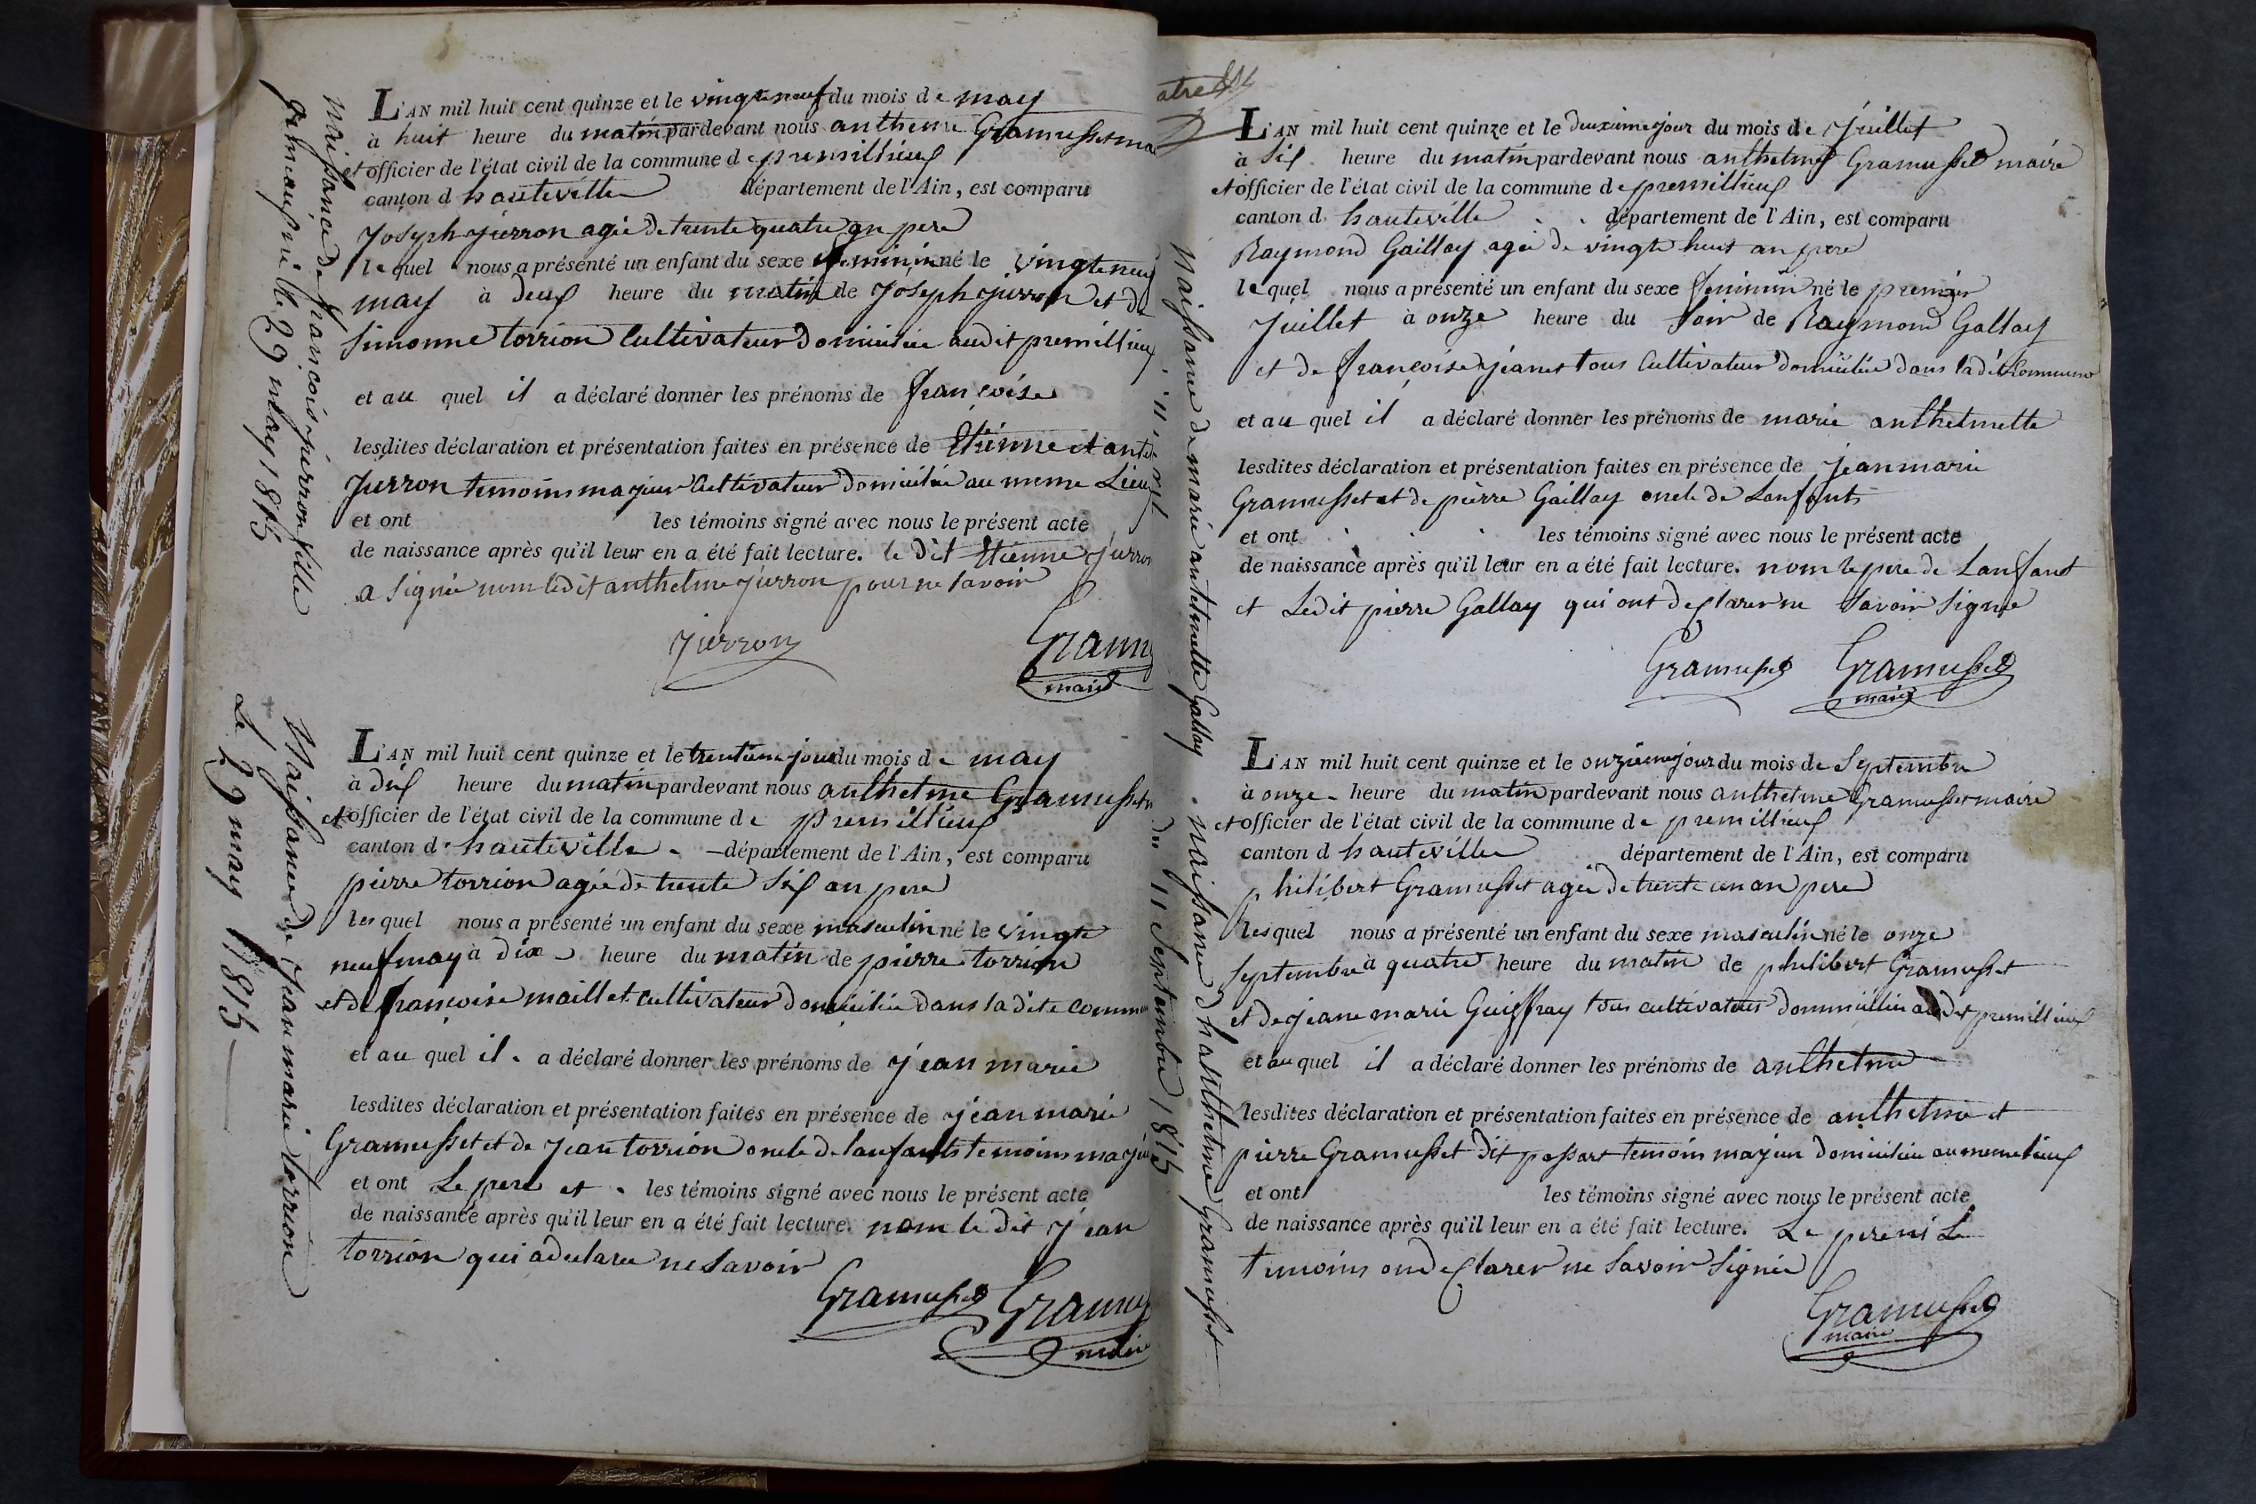 Naissance de françoise jierron fille
29 may 1815
L'AN mil huit cent quinze et le vingt neuf du mois de may
à huit heure du matin pardevant nous anthelme Gramusset
et officier de l'état civil de la commune de premillieux
canton d hauteville département de l'Ain, est comparu
Joseph jierron agée de trente quatre an pere
lequel nous a présenté un enfant du sexe feminin né le vingt neuf
may à deux heure du matin de Joseph jierron et de
simonne torrion Cultivateur domicilie audit premillieux
et au quel il a déclaré donner les prénoms de françoise
lesdites déclaration et présentation faites en présence de Etiénne et
Jierron temoins majeur Cultivateur domicilie au meme Lieux
et ont les témoins signé avec nous le présent acte
de naissance après qu'il leur en a été fait lecture. le dit Etienne jierron
a signée nom ledit anthelme jierron pour ne savoir
Jierron
maire
Naissance de Jean marie torrion
Le 29 may 1815
L'AN mil huit cent quinze et le trentieme jour du mois de may
à dix heure du matin pardevant nous anthelme Gramusset
et officier de l'état civil de la commune de premillieux
canton d hauteville département de l'Ain, est comparu
pierre torrion agée de trente six an pere
lesquel nous a présenté un enfant du sexe masculin né le vingt
neuf may à dix heure du matin de pierre torrion
et de françoise maillet cultivateur domicilie dans la dite
et au quel il a déclaré donner les prénoms de jean marie
lesdites déclaration et présentation faites en présence de jean marie
Gramusset et de jean torrion oncle de lanfants temoins
et ont Le pere et les témoins signé avec nous le présent acte
de naissance après qu'il leur en a été fait lecture. nom le dit jean
torrion qui a declaree ne savoir
Gramusset
Naissance de marie antelmette Gallay
L'AN mil huit cent quinze et le deuxieme jour du mois de Juillet
à six heure du matin pardevant nous anthelme Gramusset maire
et officier de l'état civil de la commune de premillieux
canton d hauteville département de l'Ain, est comparu
Raymond Gaillay agée de vingt huit an pere
lequel nous a présenté un enfant du sexe feminin né le premier
Juillet à onze heure du soir de Raymond Gallay
et de françoise jeanet tous Cultivateur domicilie dans la dite Commune
et au quel il a déclaré donner les prénoms de marie anthelmette
lesdites déclaration et présentation faites en présence de jean marie
Gramusset et de pierre Gaillay oncle de Lanfants
et ont les témoins signé avec nous le présent acte
de naissance après qu'il leur en a été fait lecture. nom le pere de Lanfant
et Ledit pierre Gallay qui ont declarer ne savoir signie
Gramusset Gramusset
maire
Naissance d'hanthelme Gramusset
du 11 Septembre 1815
L'AN mil huit cent quinze et le onzieme jour du mois de Septembre
à onze heure du matin pardevant nous anthelme Gramusset maire
et officier de l'état civil de la commune de premillieux
canton d hauteville département de l'Ain, est comparu
philibert Gramusset agée de trente un an pere
lesquel nous a présenté un enfant du sexe masculin né le onze
septembre à quatre heure du matin de philibert Gramusset
et de jeane marie Guiffray tous cultivateur dommicilie audit premillieux
et au quel il a déclaré donner les prénoms de anthelme
lesdites déclaration et présentation faites en présence de anthelme et
pierre Gramusset dit temoin majeur domicilie au meme lieux
et ont les témoins signé avec nous le présent acte
de naissance après qu'il leur en a été fait lecture. Le pere ni Le
temoins on declarer ne savoir signie
Gramusset
maire